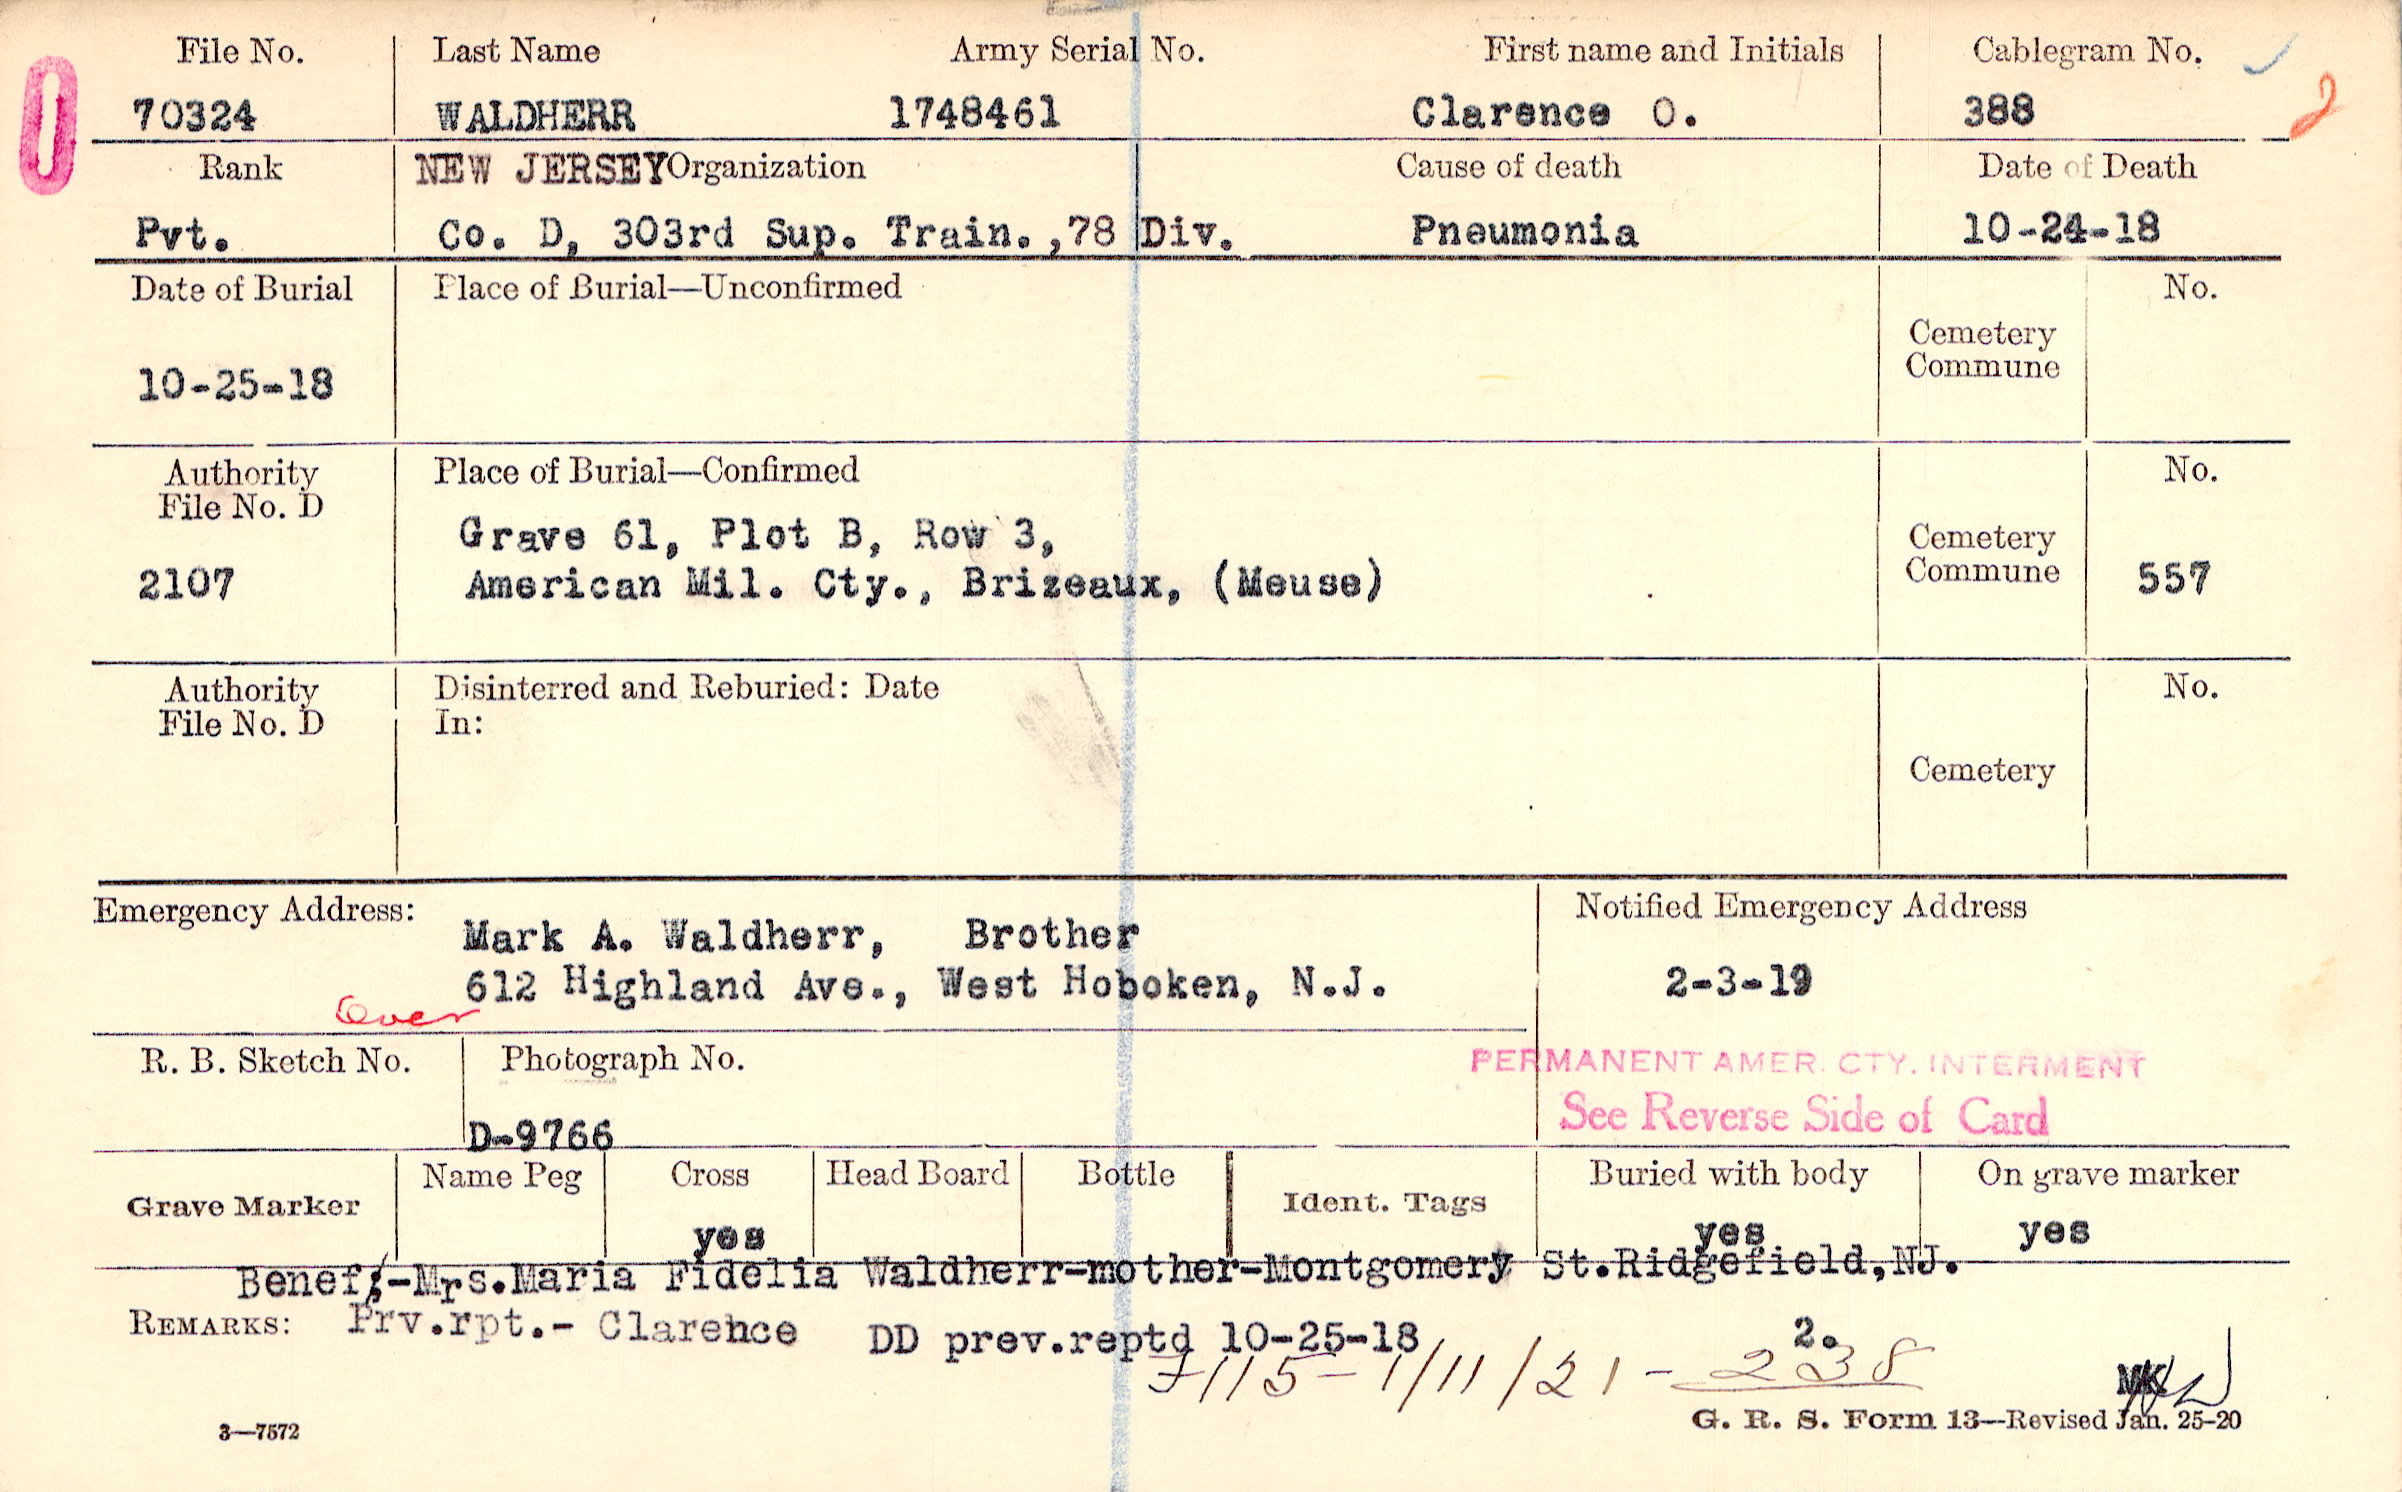 File No. Last Name Army Serial No. First name and Initials Cablegram No.
70324 WALDHERR 1748461 Clarence O. 388
Rank NEW JERSEY Organization Cause of death Date of Death
Pvt. Co. D, 303rd Sup. Train.,78 Div. Pneumonia 10-24-18
Date of Burial Place of Burial—Unconfirmed No.
Cemetery
Commune
10-25-18
Authority Place of Burial—Confirmed No.
File No. D
Grave 61, Plot B, Row 3,
Cemetery
Commune
2107 American Mil. Cty., Brizeaux, (Meuse) 557
Authority Disinterred and Reburied: Date No.
File No. D In:
Cemetery
Emergency Address: Notified Emergency Address
Mark A. Waldherr, Brother
612 Highland Ave., West Hoboken, N.J. 2-3-19
Over
R. B. Sketch No. Photograph No.
PERMANENT AMER. CTY. INTERMENT
See Reverse Side of Card
D-9766
Name Peg Cross Head Board Bottle Buried with body On grave marker
Grave Marker Ident. Tags
yes yes yes
Benef;-Mrs.Maria Fidelia Waldherr-mother-Montgomery St.Ridgefield,NJ.
REMARKS: Prv.rpt.- Clarence DD prev.reptd 10-25-18 2.
7115-1/11/21-238
MK
3—7572 G. R. S. Form 13—Revised Jan. 25-20